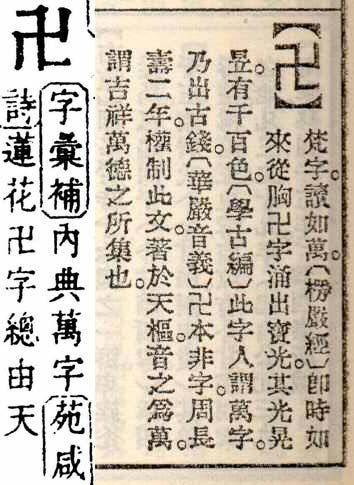 【卍】
梵字。讀如萬。〔楞嚴經〕卽時如
來從胸卍字涌出寶光。其光晃
昱。有千百色。〔學古編〕此字人謂萬字。
乃出古錢。〔華嚴音義〕卍本非字。周長
壽二年。權制此文。著於天樞。音之爲萬。
謂吉祥萬德之所集也。
卍
字彙補內典萬字苑咸
詩蓮花卍字總由天